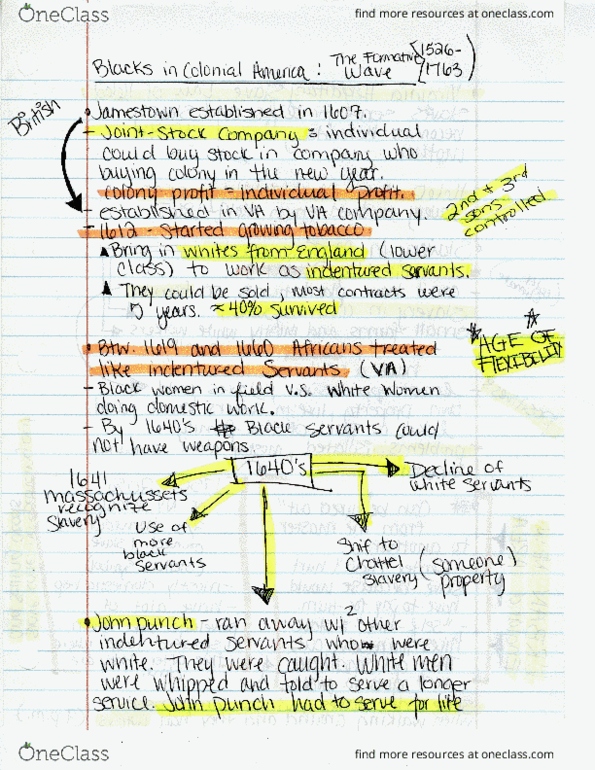 OneClass
find more resources at oneclass.com
Blacks in Colonial America: The Formative Wave [1526-1763)
British
• Jamestown established in 1607.
- Joint-Stock Company = individual
could buy stock in company who
buying colony in the new year.
colony profit = individual profit.
- established in VA by VA company.
2nd + 3rd
sons
controlled
- 1612 - Started growing tobacco
▲ Bring in whites from England (lower
class) to work as indentured servants.
▲ They could be sold, most contracts were
5 years. ≈40% survived
• Btw. 1619 and 1660 Africans treated
like indentured Servants (VA)
* AGE OF *
FLEXIBILITY
- Black women in field v.s. White Women
doing domestic work.
- By 1640's Black servants could
not have weapons.
1640's
1641
massachussets
recognize
slavery
Use of
more
black
servants
Shif to
Chattel
Slavery (someone property)
Decline of
white servants
• John punch - ran away w/ 2 other
indentured servants who were
white. They were caught. White men
were whipped and told to serve a longer
service. John punch had to serve for life
OneClass
find more resources at oneclass.com